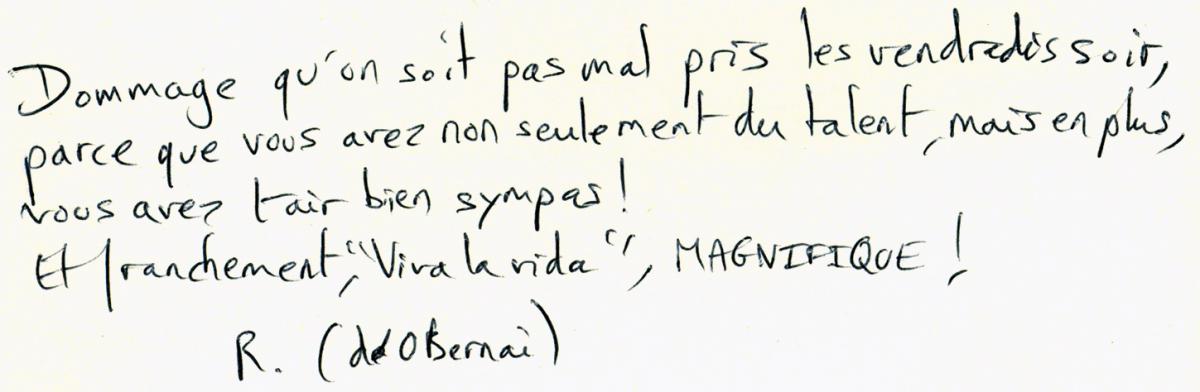 Dommage qu'on soit pas mal pris les vendredis soir,
parce que vous avez non seulement du talent, mais en plus,
vous avez l'air bien sympas !
Et franchement, "Viva la vida", MAGNIFIQUE !
R. (d'Obernai)